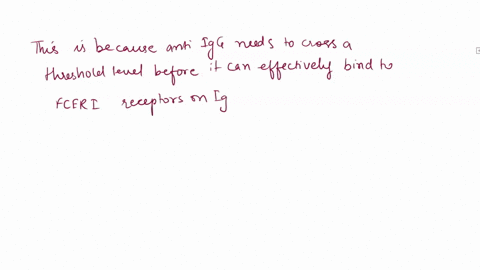 This is because anti IgG needs to cross a
threshold level before it can effectively bind to
FCERI receptors on Ig